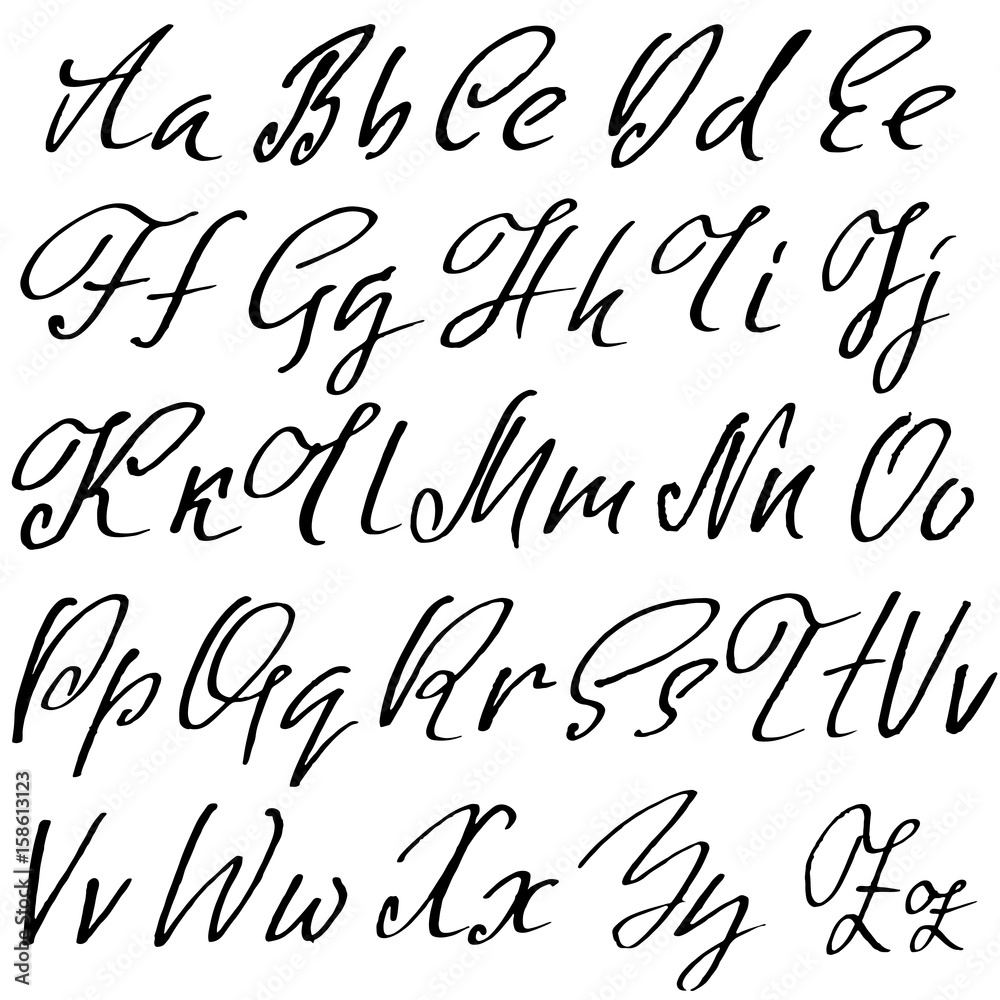 Aa Bb Cc Dd Ee
Ff Gg Hh Ii Jj
Kk Ll Mm Nn Oo
Pp Qq Rr Ss Tt Vv
Vv Ww Xx Yy Zz
Adobe Stock | #158613123